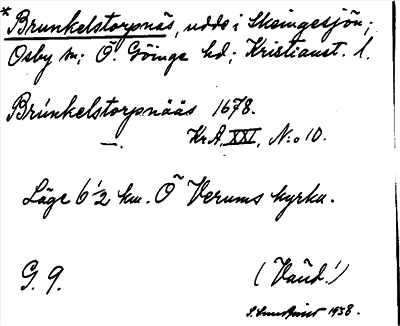 * Brunkelstorpnäs, udde i Skeingesjön;
Osby sn; Ö. Göinge hd; Kristianst. l.
Brúnkelstorpnääs 1678.
—.— KrA, XXI, N:o 10.
Läge 6 1/2 km. Ö Verums kyrka.
G. 9. (Vänd!)
1938.